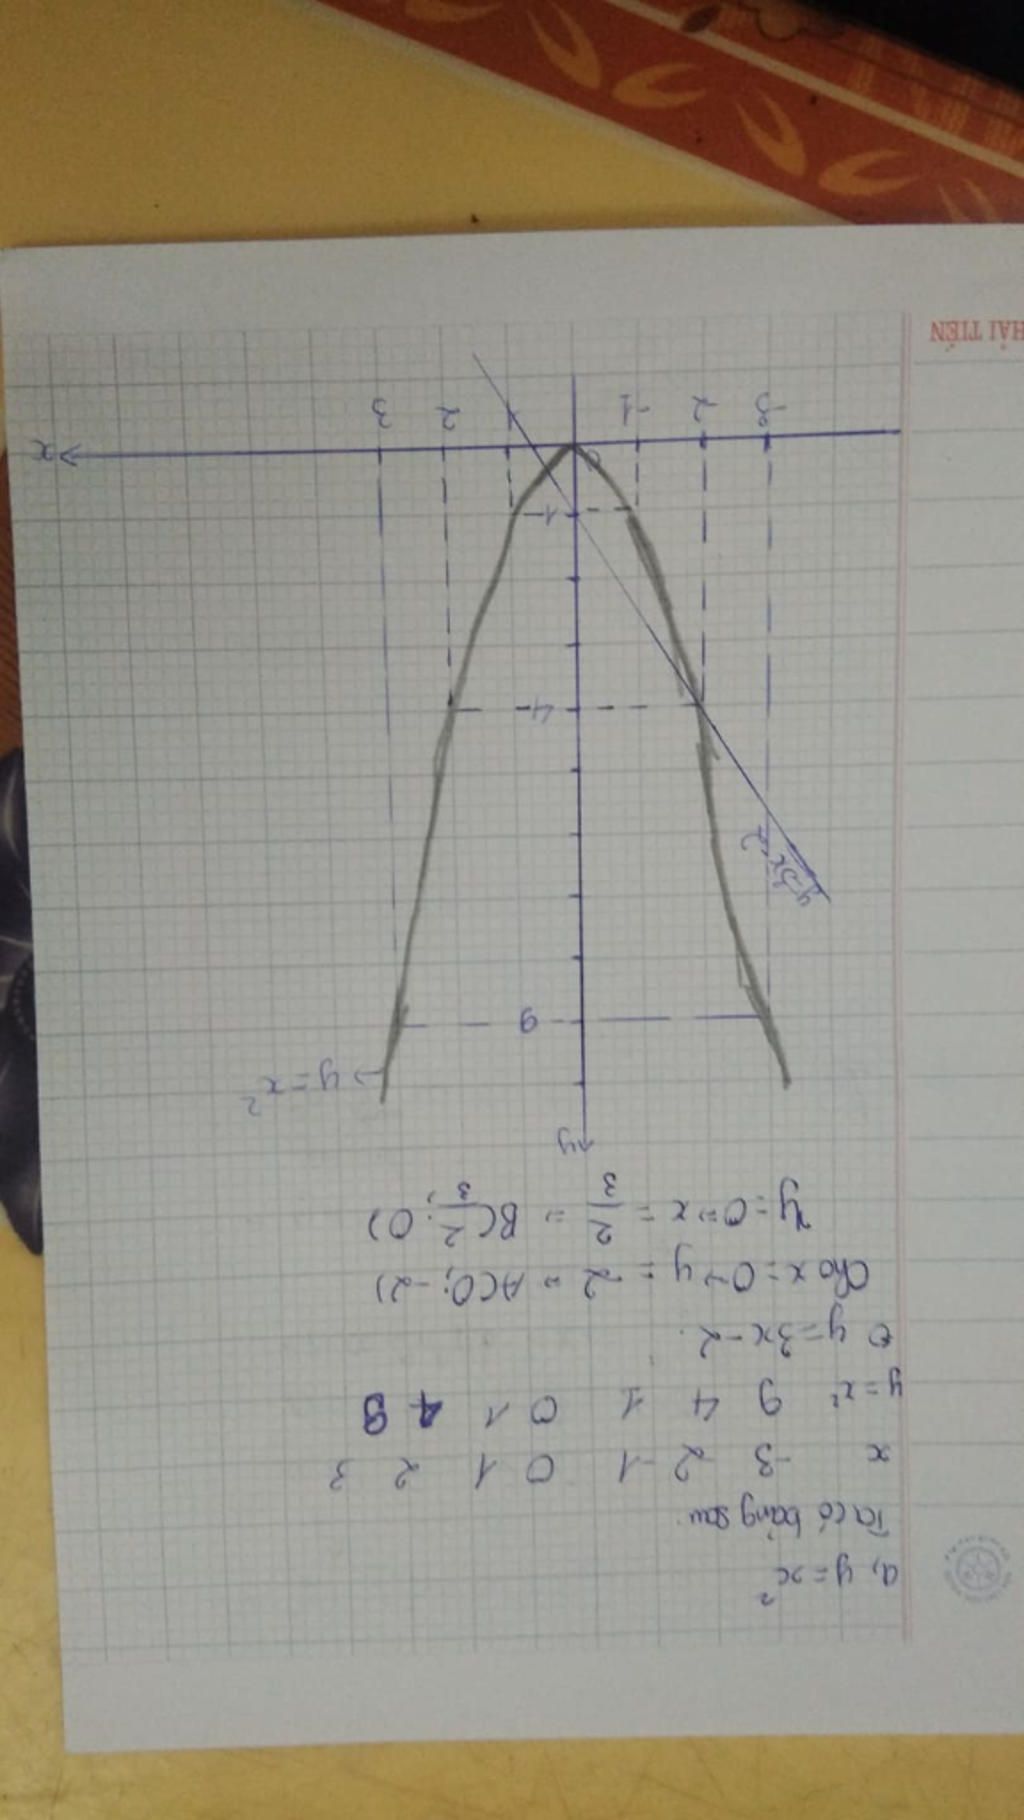 a, y = x²
Ta có bảng sau
x -3 -2 -1 0 1 2 3
y = x² 9 4 1 0 1 4 9
y = 3x - 2
Cho x = 0 → y = -2 = A(0; -2)
y = 0 => x = 2/3 = B(2/3; 0)
y
→ y = x²
9
y=3x-2
4
1
x
3 2 1 0 -1 -2 -3
HẢI TIẾN